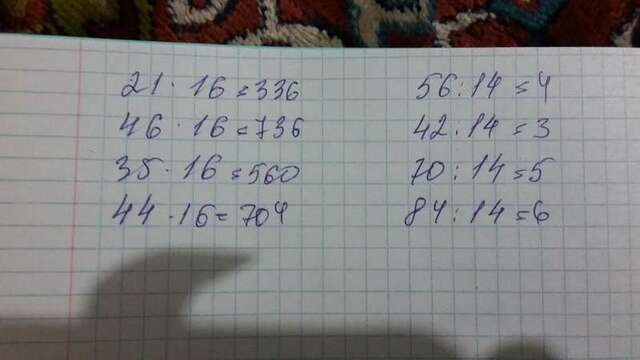 21 · 16 = 336
46 · 16 = 736
35 · 16 = 560
44 · 16 = 704
56 : 14 = 4
42 : 14 = 3
70 : 14 = 5
84 : 14 = 6